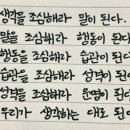 생각을 조심해라 말이 된다.
말을 조심해라 행동이 된다
행동을 조심해라 습관이 된다
습관을 조심해라 성격이 된다
성격을 조심해라 운명이 된다
우리가 생각하는 대로 된다